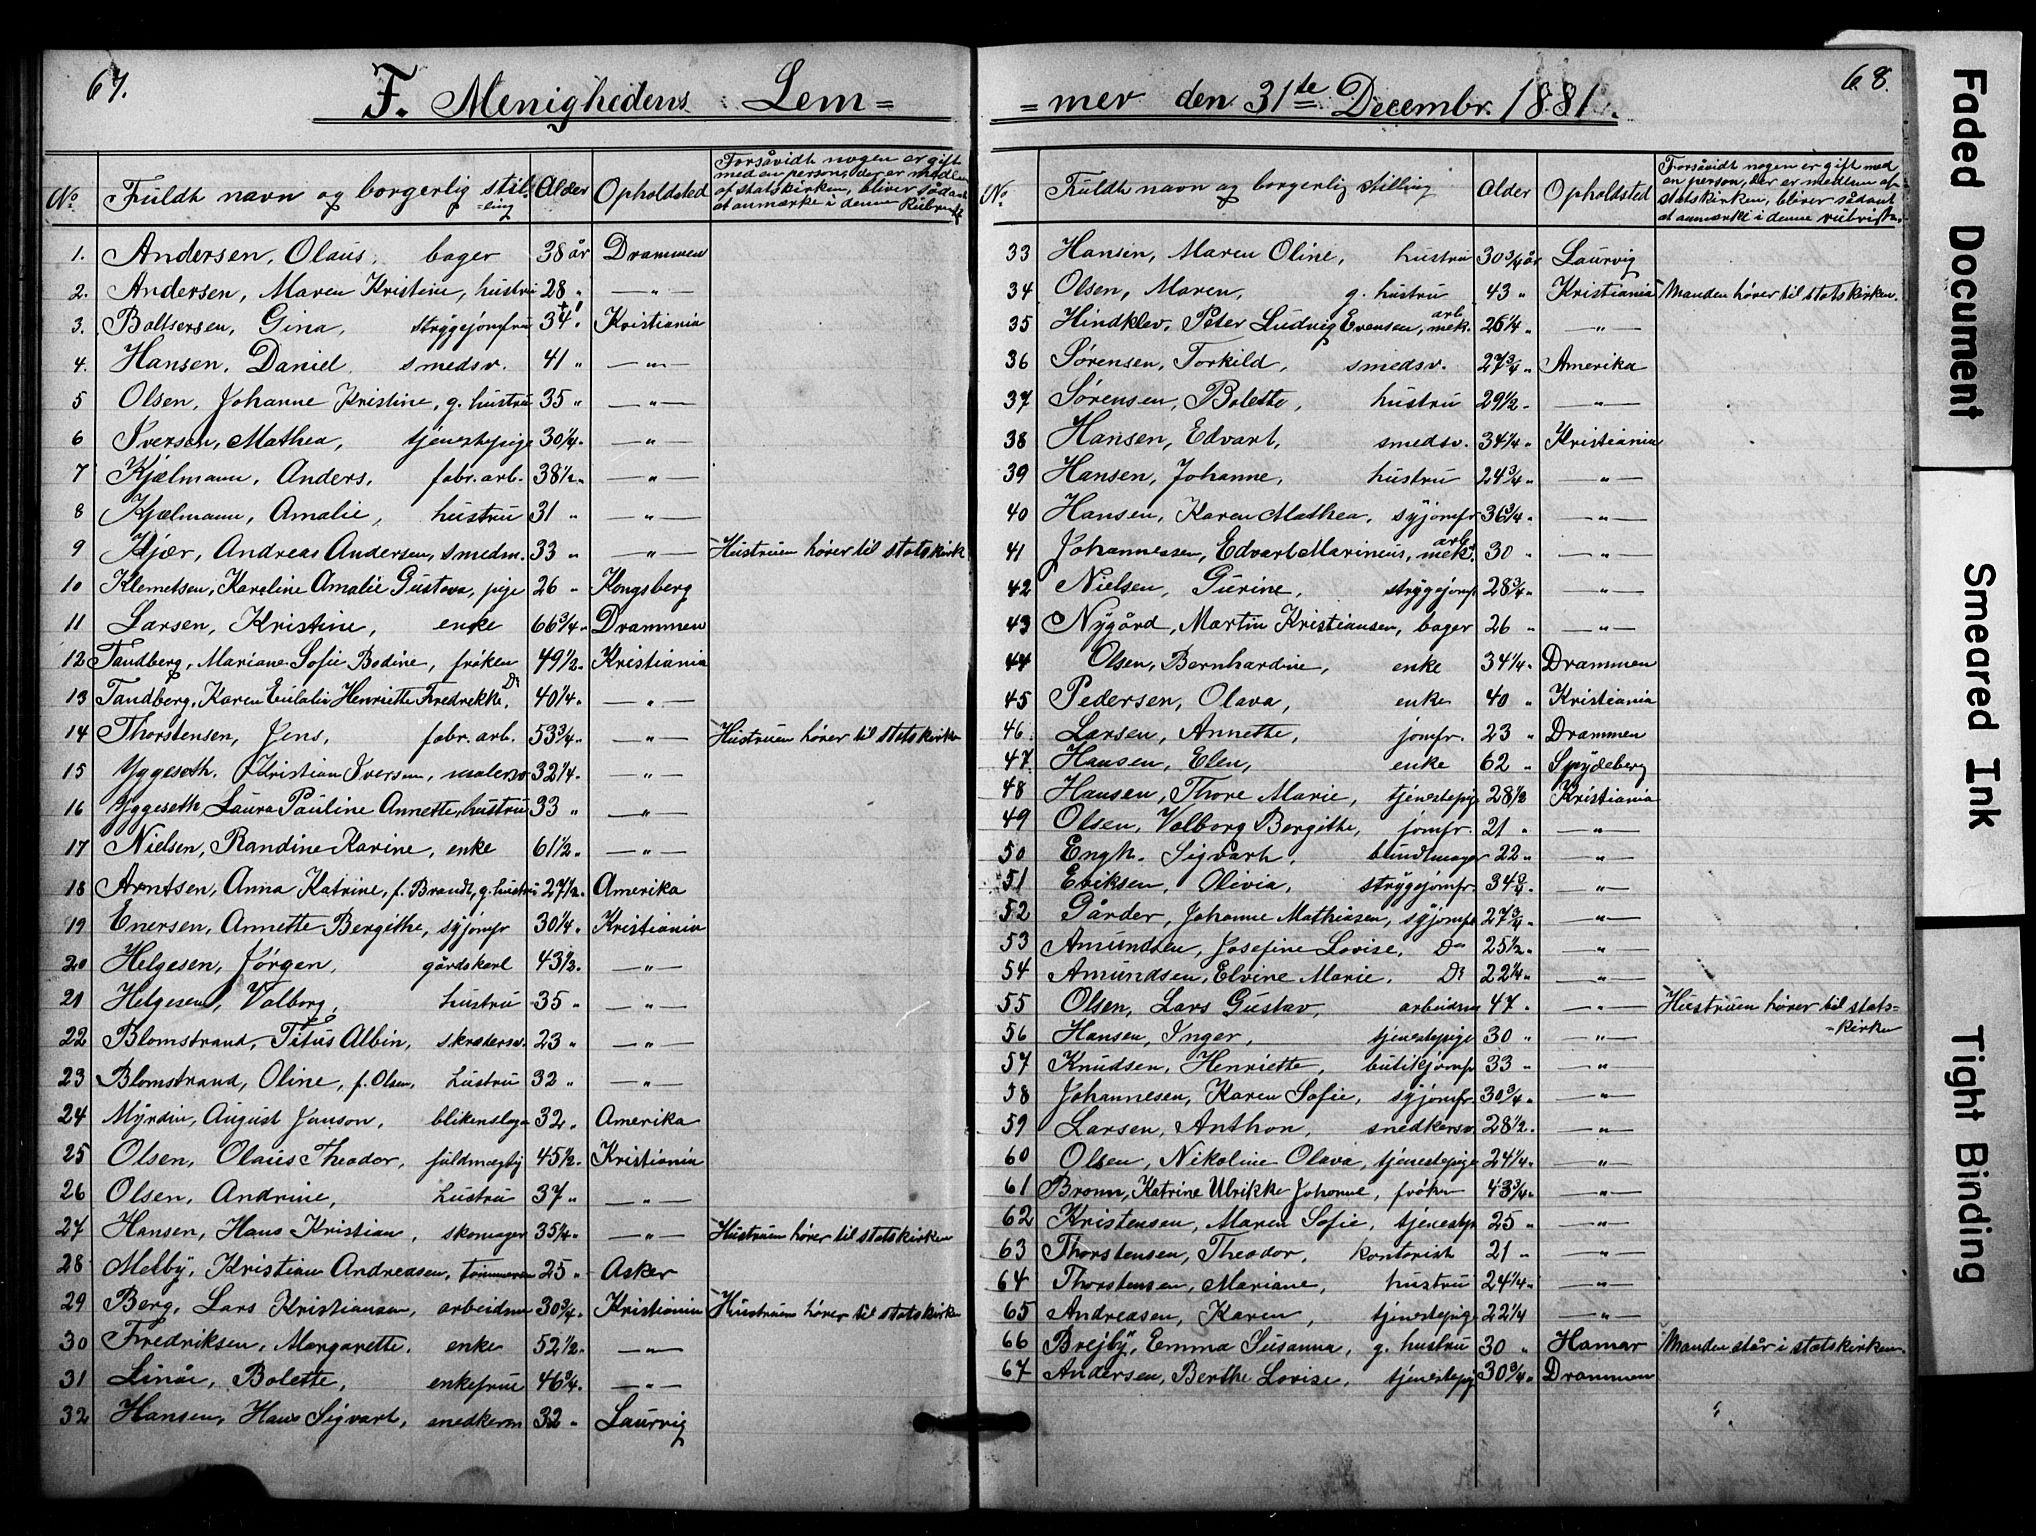 67.
F. Menighedens Lem=
No Fuldt navn og borgerlig stil=ling Alder Opholdsted Forsåvidt nogen er gift med en person, der er medlem af statskirken, bliver sådant at anmærke i denne Rubrik
1. Andersen, Olaus, bager 38 år Drammen
2. Andersen, Maren Kristine, hustru 28 " —"—
3. Baltsersen, Gina, strygejomfru 34 " Kristiania
4. Hansen, Daniel, smedsv. 41 " —"—
5 Olsen, Johanne Kristine, g. hustru 35 " —"—
6 Iversen, Mathea, tjenestepige 30 1/4 " —"—
7 Kjælmann, Anders, fabr. arb. 38 1/2 " —"—
8 Kjælmann, Amalie, hustru 31 " —"—
9 Kjær, Andreas Andersen, smedm. 33 " —"— Hustruen hører til statskirk
10 Klemetsen, Karoline Amalie Gustava, pige 26 " Kongsberg
11 Larsen, Kristine, enke 66 3/4 " Drammen
12 Tandberg, Mariane Sofie Bodine, frøken 49 1/2 " Kristiania
13 Tandberg, Karen Eulalia Henriette Fredrekke, Do 40 1/4 " —"—
14 Thorstensen, Jens, fabr. arb. 53 3/4 " —"— Hustruen hører til statskirke
15 Yggeseth, Kristian Iversen, malersv 32 1/4 " —"—
16 Yggeseth, Laura Pauline Annette, hustru 33 " —"—
17 Nielsen, Randine Karine, enke 61 1/2 " —"—
18 Arntsen, Anna Katrine, f. Brandt, g. hustru 27 1/2 " Amerika
19 Enersen, Annette Bergithe, syjomfr 30 1/4 " Kristiania
20 Helgesen, Jørgen, gårdskarl 43 1/2 " —"—
21 Helgesen, Valborg, hustru 35 " —"—
22 Blomstrand, Titus Albin, skrædersv. 23 " —"—
23 Blomstrand, Oline, f. Olsen, hustru 32 " —"—
24 Myrdin, August Jonson, blikenslag 32 " Amerika
25 Olsen, Olaus Theodor, fuldmægtig 45 1/2 " Kristiania
26 Olsen, Andrine, hustru 37 " —"—
27 Hansen, Hans Kristian, skomager 35 1/4 " —"— Hustruen hører til statskirken
28 Melby, Kristian Andreasen, tømmerm 25 " Asker
29 Berg, Lars Kristiansen, arbeidsm 30 3/4 " Kristiania Hustruen hører til statskirke
30 Fredriksen, Margarette, enke 52 1/2 " —"—
31 Linåe, Bolette, enkefrue 46 3/4 " —"—
32 Hansen, Hans Sigvart, snedkerm 32 " Laurvig
68.
=mer den 31te Decembr. 1881.
No. Fuldt navn og borgerlig stilling Alder Opholdsted Forsåvidt nogen er gift med en person, der er medlem af statskirken, bliver sådant at anmærke i denne rubrik
33 Hansen, Maren Oline, hustru 30 3/4 år Laurvig
34 Olsen, Maren, g. hustru 43 " Kristiania Manden hører til statskirken.
35 Hindklev, Peter Ludvig Evensen, mek. arb. 26 1/4 " —"—
36 Sørensen, Torkild, smedsv. 27 3/4 " Amerika
37 Sørensen, Bolette, hustru 29 1/2 " —"—
38 Hansen, Edvart, smedsv. 34 1/4 " Kristiania
39 Hansen, Johanne, hustru 24 3/4 " —"—
40 Hansen, Karen Mathea, syjomfr 36 3/4 " —"—
41 Johannessen, Edvart Marinius, mek. arb. 30 " —"—
42 Nielsen, Gurine, strygejomf 28 3/4 " —"—
43 Nygård, Martin Kristiansen, bager 26 " —"—
44 Olsen, Bernhardine, enke 34 1/4 " Drammen
45 Pedersen, Olava, enke 40 " Kristiania
46. Larsen, Annette, jomfr. 23 " Drammen
47. Hansen, Elen, enke 62 " Spydeberg
48 Hansen, Thore Marie, tjenestepig 28 1/2 Kristiania
49 Olsen, Valborg Bergithe, jomfr. 21 " —"—
50 Engh, Sigvart, bundtmager 22 " —"—
51 Eriksen, Olivia, strygejomfr. 34 3/4 " —"—
52 Gårder, Johanne Mathiasen, syjomf 27 3/4 " —"—
53 Amundsen, Josefine Lovise, Do 25 1/2 " —"—
54 Amundsen, Elvine Marie, Do 22 1/4 " —"—
55 Olsen, Lars Gustav, arbeidsm 47 " —"— Hustruen hører til stats=kirke
56 Hansen, Inger, tjenestepige 30 " —"—
57 Knudsen, Henriette, butikjomfr 33 " —"—
58 Johannesen, Karen Sofie, syjomfr 30 3/4 " —"—
59 Larsen, Anthon, snedkersv. 28 1/2 " —"—
60 Olsen, Nikoline Olava, tjenestepige 24 1/4 " —"—
61 Bronn, Katrine Ulrikke Johanne, frøken 43 3/4 " —"—
62 Kristensen, Maren Sofie, tjenestp 25 " —"—
63 Thorstensen, Theodor, kontorist 21 " —"—
64 Thorstensen, Mariane, hustru 24 1/4 " —"—
65 Andreasen, Karen, tjenestepige 22 1/4 —"—
66 Brejby, Emma Susanna, g. hustru 30 " Hamar Manden står i statskirken
67 Andersen, Berthe Lovise, tjenestepig 30 3/4 " Drammen
Faded Document
Smeared Ink
Tight Binding